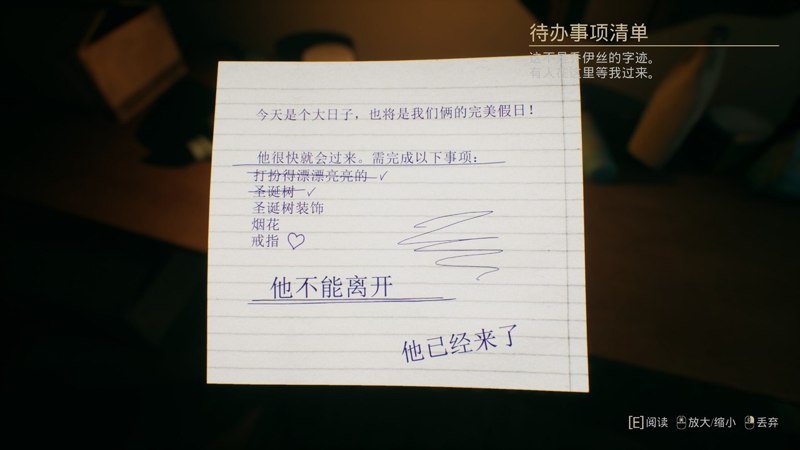 待办事项清单
这不是乔伊丝的字迹。
有人在这里等我过来。
今天是个大日子，也将是我们俩的完美假日！
他很快就会过来。需完成以下事项：
打扮得漂漂亮亮的 ✓
圣诞树 ✓
圣诞树装饰
烟花
戒指 ♡
他不能离开
他已经来了
[E]阅读 放大/缩小 丢弃